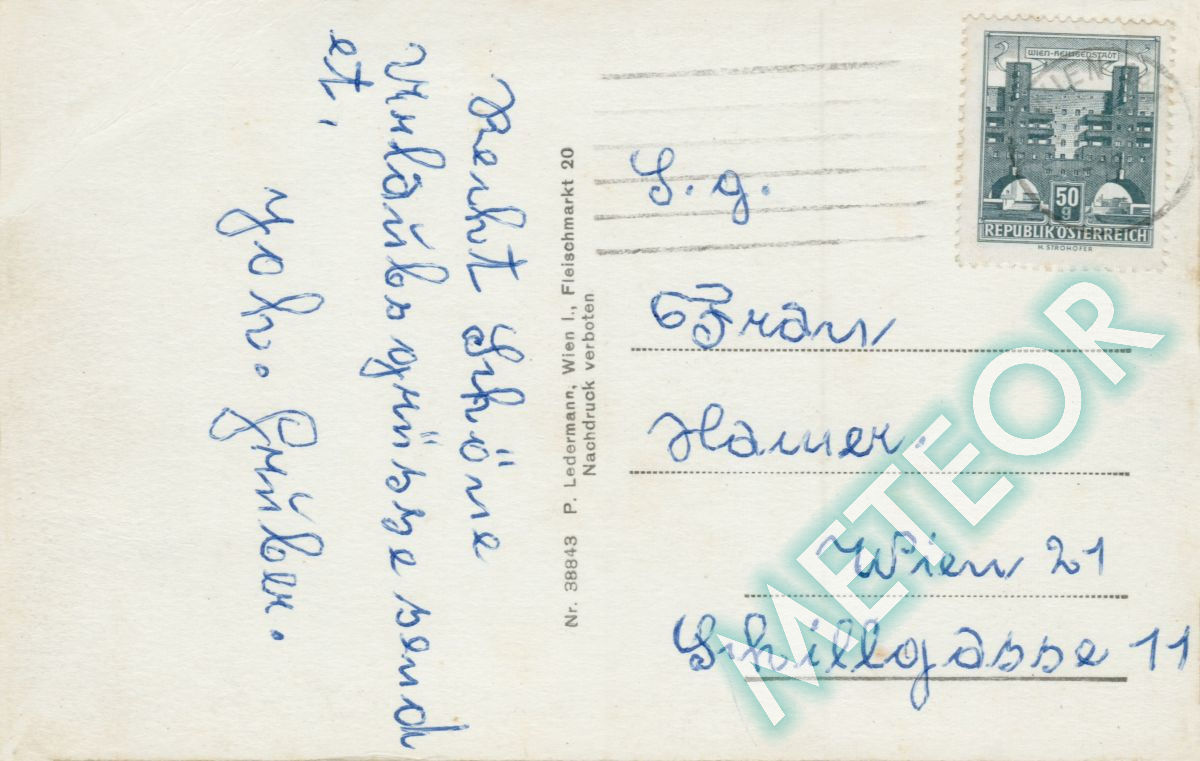 Recht Schöne
Urlaubsgrüsse send
et,
Joh. Gruber.
Nr. 38843 P. Ledermann, Wien I., Fleischmarkt 20
Nachdruck verboten
WIEN-HEILIGENSTADT
WIEN
50
g
REPUBLIK ÖSTERREICH
H. STROHOFER
S. g.
Frau
Hamer.
Wien 21
Schillgasse 11
METEOR